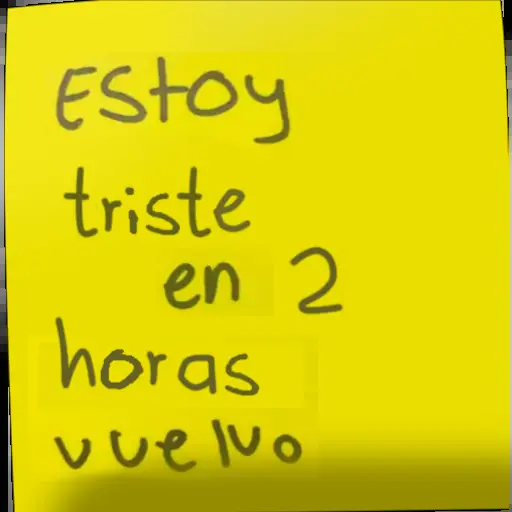 Estoy
triste
en 2
horas
vuelvo